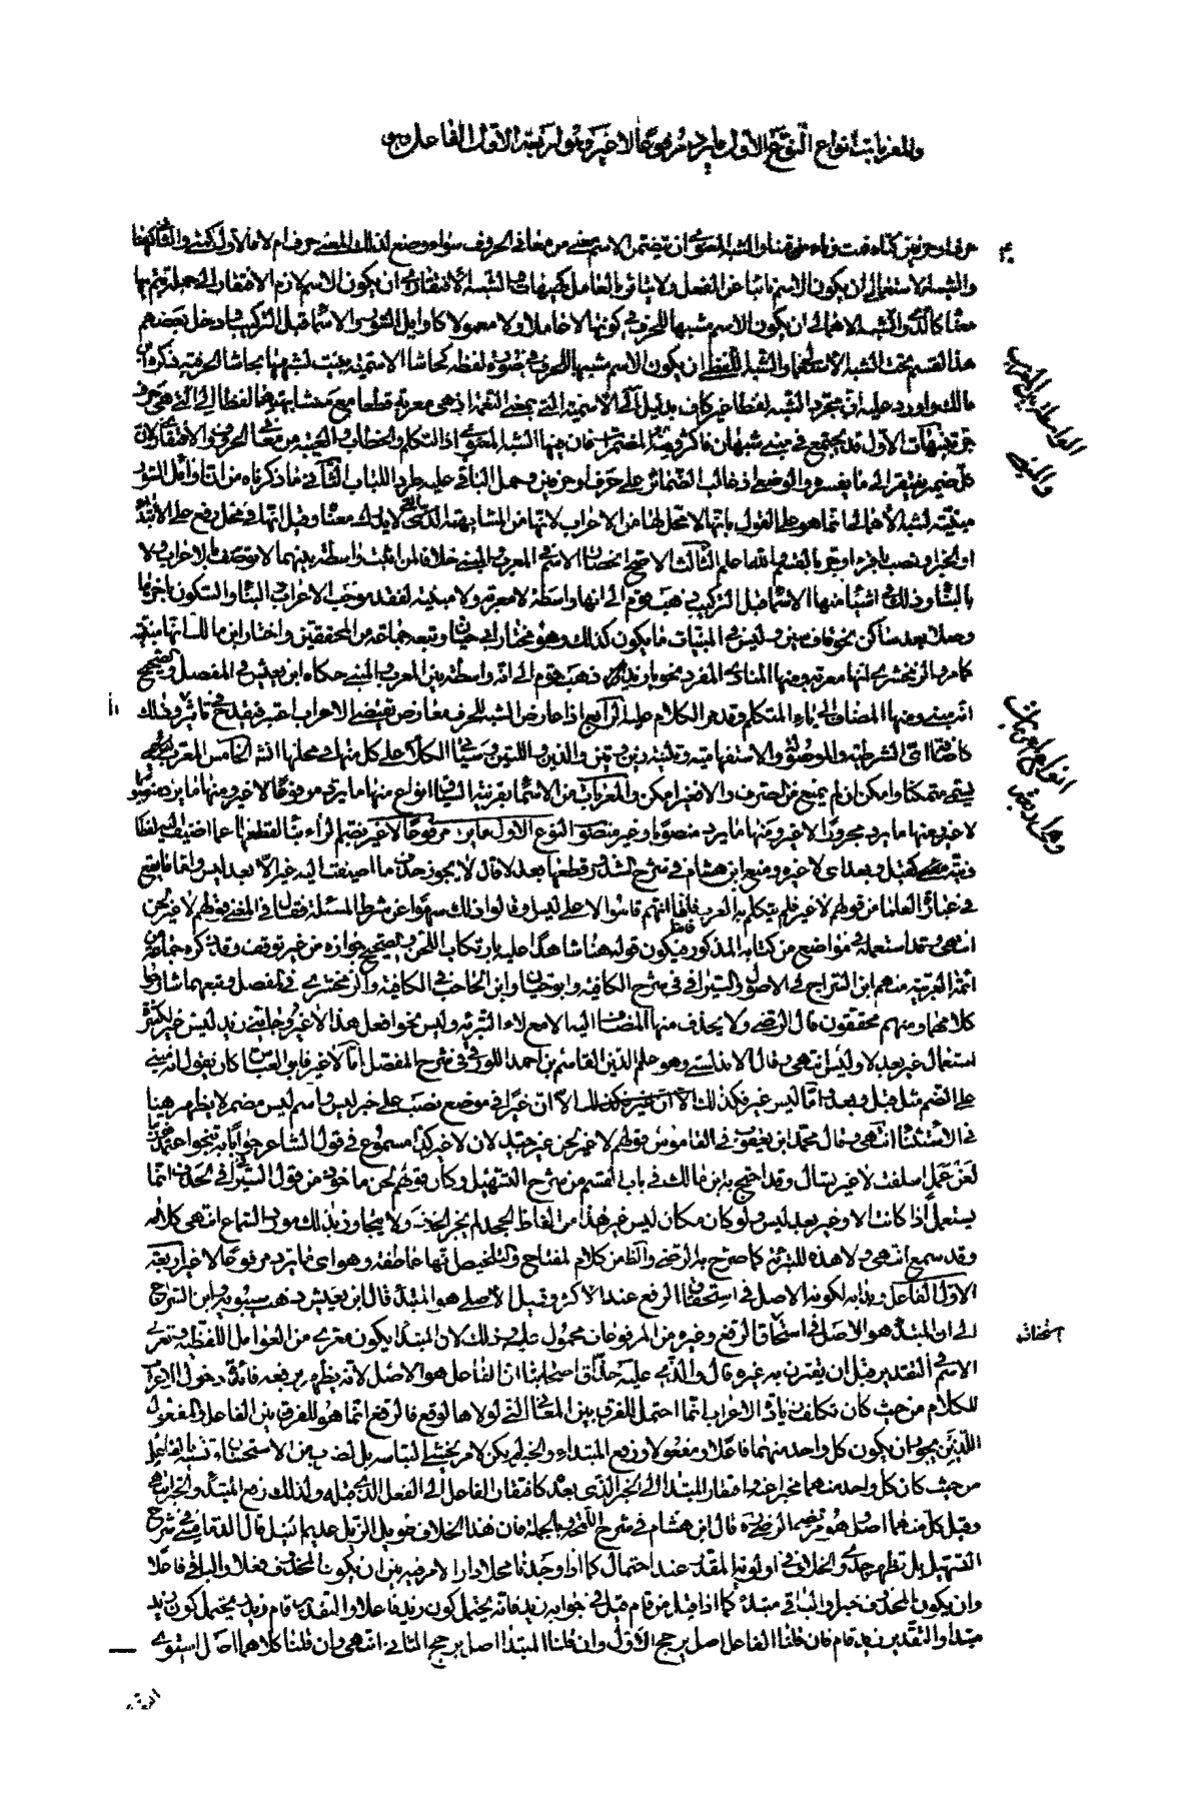 والمعربات أنواع النوع الأول ما يرد مرفوعا لا غير وهو أربعة الأول الفاعل
حرف او حرفين كتاء قمت وناء من قمنا والشبه المعنوي ان يتضمن الاسم معنى من معاني الحروف سواء وضع لذلك المعنى حرف ام لا فالاول كمتى والثاني كهنا
والشبه الاستعمالي ان يكون الاسم نائبا عن الفعل ولا يتاثر بالعامل كهيهات والشبه الافتقاري ان يكون الاسم لازم الافتقار الى جملة يتم بها
معناه كالذي والشبه الاهمالي ان يكون الاسم مشبها للحرف في كونها لا عاملا ولا معمولا كاوايل السور والاسماء قبل التركيب وادخل بعضهم
هذا القسم تحت الشبه الاستعمالي والشبه اللفظي ان يكون الاسم شبيها للحرف في لفظه كحاشا الاسمية بنيت لشبهها بحاشا الحرفية ذكره ابن
مالك واورد عليه ان مجرد الشبه لفظا غير كاف بدليل الى الاسمية التي بمعنى النعمة اذ هي معربة قطعا مع مشابهتها لفظا الى التي هي حرف
جر تنبيهات الاول قد يجتمع في مبنى شبهان فاكثر ومنه المضمرات فان فيها الشبه المعنوي اذ التكلم والخطاب والغيبة من معاني الحروف والافتقاري لان
كل ضمير يفتقر الى ما يفسره والوضعي اذ غالب الضمائر على حرف او حرفين وحمل الباقي عليه طردا للباب الثاني ما ذكرناه من ان اوائل السور
مبنية لشبه الاهمالي انما هو على القول بانها لا محل لها من الاعراب لانها من المتشابه الذي لا يدرك معناه وقيل انها في محل رفع على الابتداء
او الخبر او نصب باقرا او جر بالقسم الله اعلم الثالث الاصح انحصار الاسم في المعرب والمبنى خلافا لمن اثبت واسطة بينهما لا توصف بالاعراب ولا
بالبناء وذلك في اشياء منها الاسماء قبل التركيب ذهب قوم الى انها واسطة لا معربة ولا مبنية لفقد موجب الاعراب والبناء والسكون باخرها
وصلا بعد ساكن نحو قاف سين وليس في المبنيات ما يكون كذلك وهو مختار ابي حيان وتبعه جماعة من المحققين واختار ابن مالك انها مبنية
كما مر والزمخشري انها معربة ومنها المنادى المفرد نحو يا زيد ذهب قوم الى انه واسطة بين المعرب والمبنى حكاه ابن يعيش في المفصل والصحيح
انه مبنى ومنها المضاف الى ياء المتكلم وقد مر الكلام عليه الرابع اذا عارض الشبه للحرف معارض يقتضي الاعراب اعتبر فيقدح في تاثيره وذلك
كاضافة اي الشرطية والموصولة والاستفهامية وتثنية ذين وتين واللذين واللتين وسياتي الكلام على كل منها في محلها انشه الخامس المعرب
يسمى متمكنا وامكن ان لم يمنع من الصرف والا فغير امكن والمعربات من الاسماء بقرينة السياق انواع منها ما يرد مرفوعا لا غير ومنها ما يرد منصوبا
لا غير ومنها ما يرد مجرورا لا غير ومنها ما يرد منصوبا وغير منصوب النوع الاول ما يرد مرفوعا لا غير بضم الراء بناء لقطعها عما اضيفت اليه لفظا
ونيته كقبل وبعد اي لا غيره ومنع ابن هشام في شرح الشذور قطعها بعد لا قال لا يجوز حذف ما اضيفت اليه غير الا بعد ليس واما ما يقع
في عبارة العلماء من قولهم لا غير فلم يتكلم به العرب فاما انهم قاسوا لا على ليس او قالوا ذلك سهوا عن شرط المسئلة وقال في المغنى قولهم لا غير لحن
انتهى وقد استعمله في مواضع من كتابه المذكور فيكون قوله هنا شاهدا عليه بارتكاب اللحن والصحيح جوازه من غير توقف وقد ذكره جماعة من
ائمة العربية منهم ابن السراج في الاصول والسيرافي في شرح الكافية وابو حيان وابن الحاجب في الكافية والزمخشري في المفصل وتبعهما شارحا
كلامهما ومنهم محققون قال الرضي ولا يحذف منها المضاف اليه الا مع لا التبرئة وليس نحو افعل هذا لا غير وجاءني زيد ليس غير لكثرة
استعمال غير بعد لا وليس انتهى وقال الاندلسي وهو علم الدين القاسم بن احمد اللورقي في شرح المفصل اما لا غير فابو العباس كان يقول انه مبنى
على الضم مثل قبل وبعد واما ليس غير فكذلك الا ان غيرا في موضع نصب على خبر ليس واسم ليس مضمر لا يظهر هينا
في الاستثناء انتهى وقال محمد ابن يعقوب في القاموس قولهم لا غير لحن غير جيد لان لا غير كذا مسموع في قول الشاعر جوابا به تنجو اعتمد
لعن عمل اسلفت لا غير تسال وقد احتج به ابن مالك في باب القسم من شرح التسهيل وكان قولهم لحن ماخوذ من قول السيرافي الحذف انما
يستعمل اذا كانت الا وغير بعد ليس ولو كان مكان ليس غيرها من الفاظ الجحد لم يجز الحذف ولا يتجاوز بذلك مورد السماع انتهى كلامه
وقد سمع انتهى ولا هذه للتبرئة كما صرح به الرضي والظاهر من كلام المفتاح والتلخيص انها عاطفة وهو اي ما يرد مرفوعا لا غير اربعة
الاول الفاعل بدا به لكونه الاصل في استحقاق الرفع عند الاكثر وقيل الاصلي هو المبتدا قال ابن يعيش ذهب سيبويه وابن السراج
الى ان المبتدا هو الاصل في استحقاق الرفع وغيره من المرفوعات محمول عليه وذلك لان المبتدا يكون معرى من العوامل اللفظية وتعرى
الاسم في التقدير قبل ان يقترن به غيره قال والذي عليه حذاق اصحابنا ان الفاعل هو الاصل لانه يظهر برفعه فائدة دخول الاعراب
للكلام من حيث كان تكلف زيادة الاعراب انما احتمل للفرق بين المعاني التي لولاها لوقع فالرفع انما هو للفرق بين الفاعل والمفعول
اللذين يجوز ان يكون كل واحد منهما فاعلا ومفعولا ورفع المبتداء والخبر لم يكن لامر يخشى التباسه بل لضرب من الاستحسان تشبيه بالفاعل
من حيث كان كل واحد منهما مخبرا عنه وافتقار المبتدا الى الخبر الذي بعده كافتقار الفاعل الى الفعل الذي قبله ولذلك رفع المبتدا والخبر
وقيل كل منهما اصل وهو مرتضى الرضي قال ابن هشام في شرح اللمحة وبالجملة فان هذا الخلاف طويل الذيل عديم النيل قال الدماميني في شرح
التسهيل بل تظهر جدوى الخلاف في اولوية المقدر عند احتمال كما اذا وجدنا محلا دار الامر فيه بين ان يكون المحذوف فعلا والباقي فاعلا
وان يكون المحذوف خبرا والباقي مبتدا كما اذا قيل من قام قيل في جوابه زيد فانه يحتمل كون زيد فاعلا والتقدير قام زيد ويحتمل كون زيد
مبتدا والتقدير زيد قام فان قلنا الفاعل اصل يرجح الاول وان قلنا المبتدا اصل يرجح الثاني انتهى وان قلنا كلاهما اصل استوى
الواسطة بين المعرب
والمبنى
انواع المعربات
استحقاقه